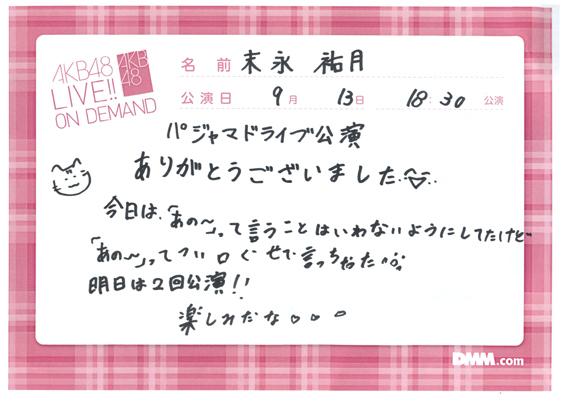 AKB48
LIVE!!
ON DEMAND
AKB
48
名前 末永 祐月
公演日 9月 13日 18:30 公演
パジャマドライブ公演
ありがとうございました
今日は、「あの〜」って言うことはいわないようにしてたけど
「あの〜」ってつい口ぐせで言っちゃた
明日は2回公演!!
楽しみだな
DMM.com